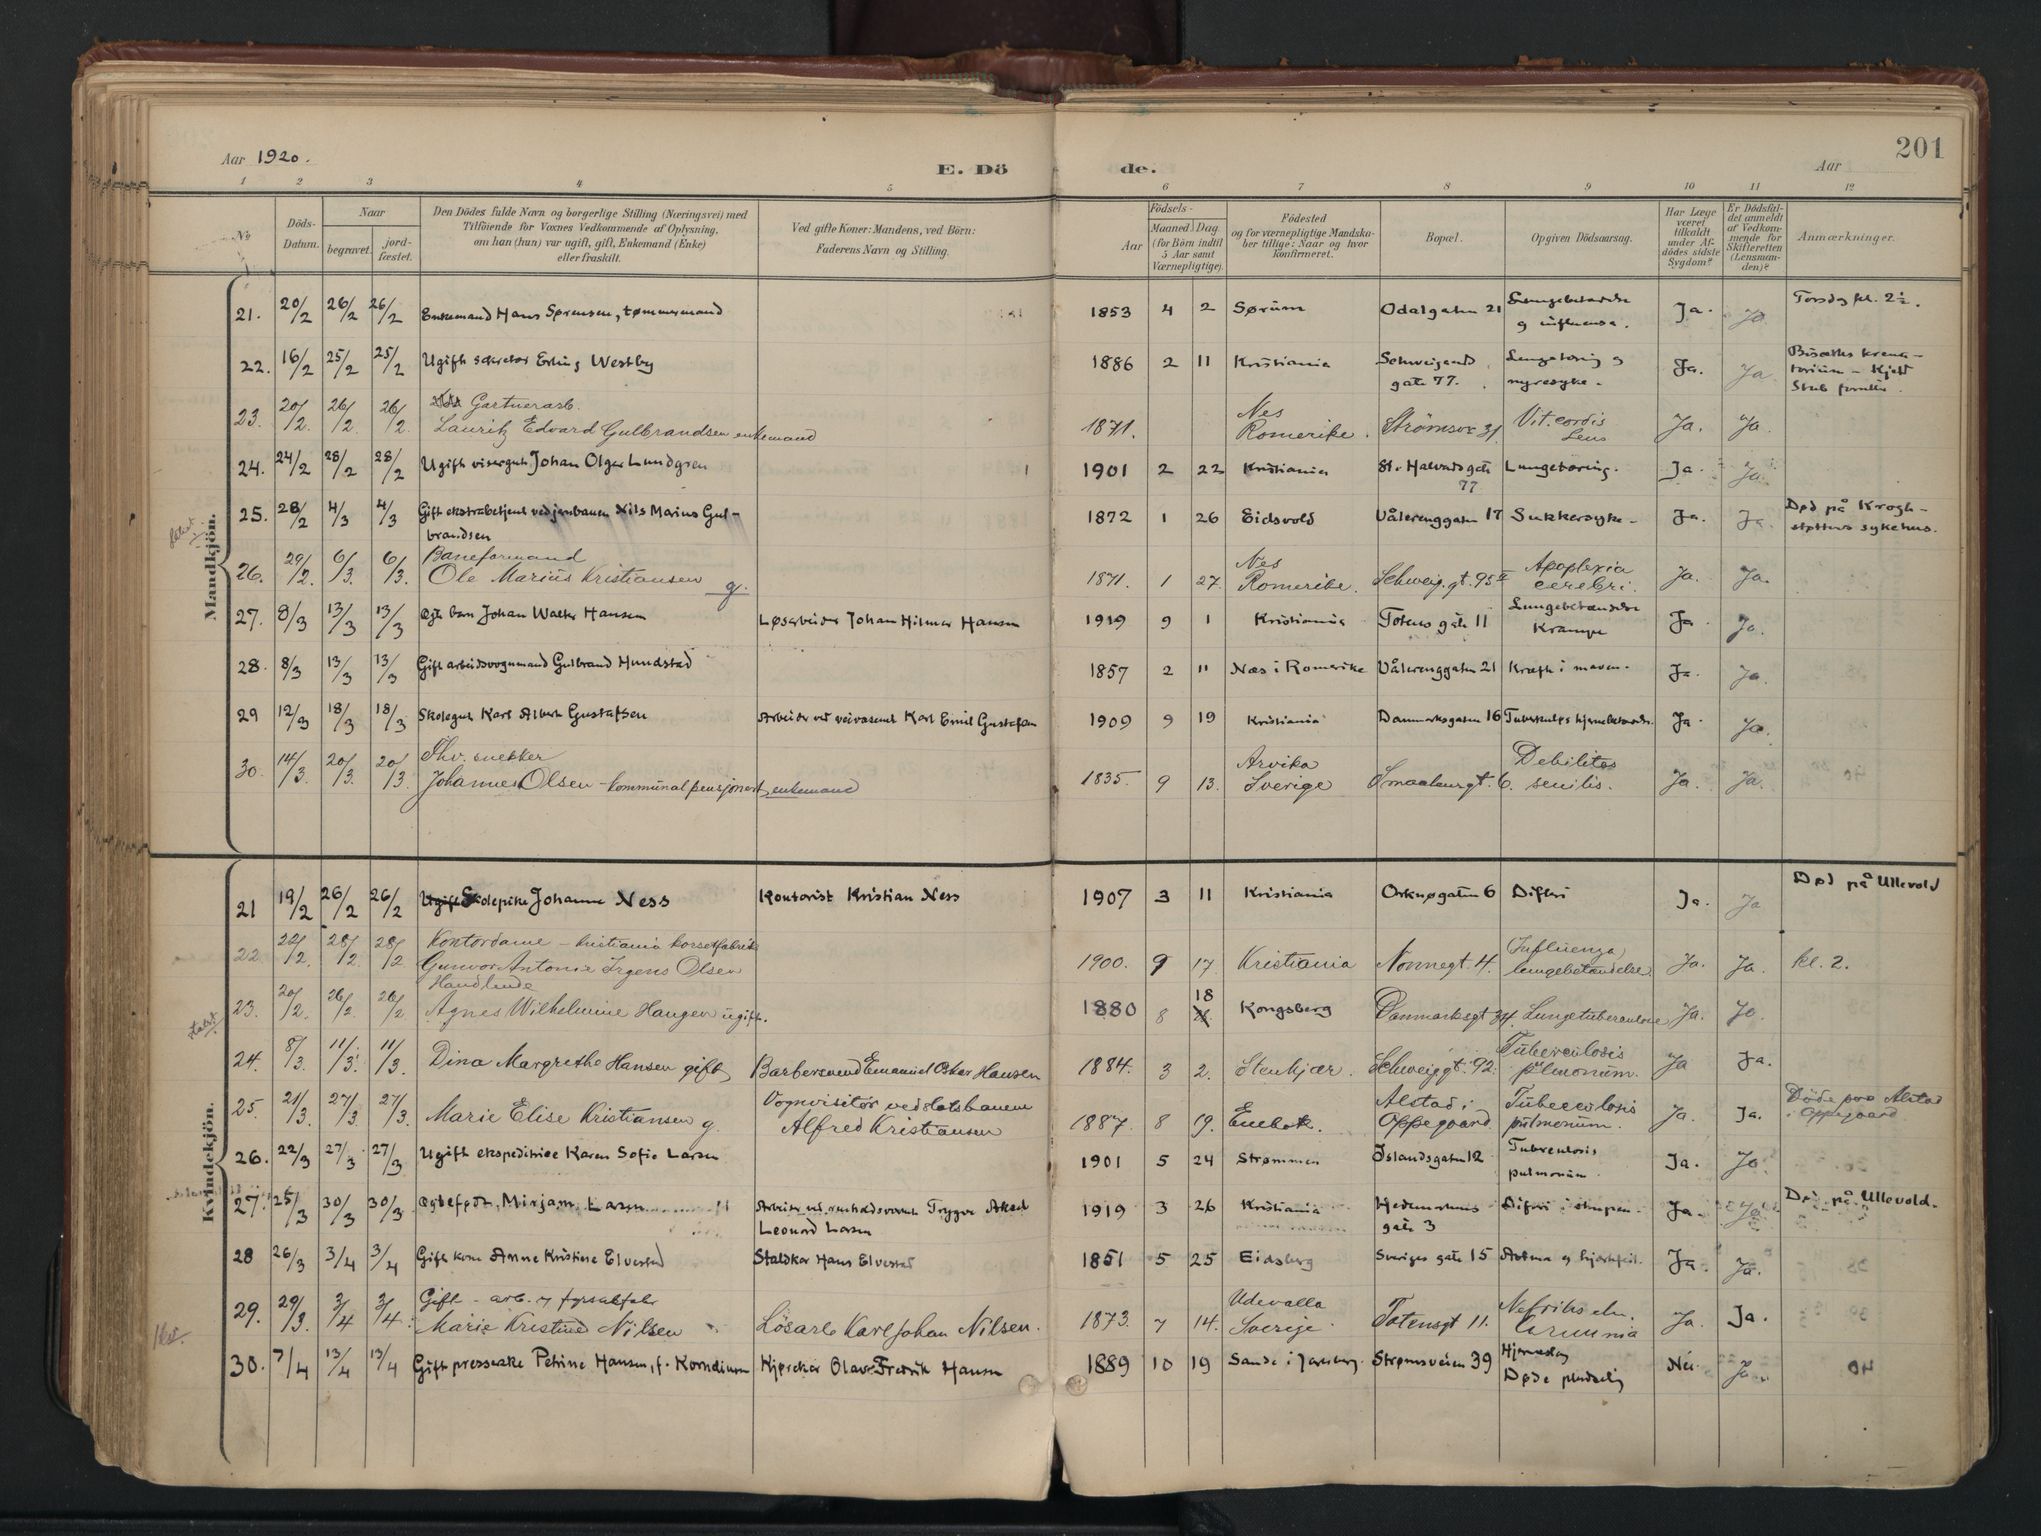 201
Aar 1920. E. Dö de. Aar
1 2 3 4 5 6 7 8 9 10 11 12
No Döds-Datum. Naar begravet. jord-fæstet. Den Dödes fulde Navn og borgerlige Stilling (Næringsvei) med Tilföiende for Voxnes Vedkommende af Oplysning, om han (hun) var ugift, gift, Enkemand (Enke) eller fraskilt. Ved gifte Koner: Mandens, ved Börn: Faderens Navn og Stilling. Aar Födsels- Maaned. Dag. (for Börn indtil 5 Aar samt Værnepligtige). Födested og for værnepligtige Mandskaber tillige: Naar og hvor Konfirmeret. Bopæl. Opgiven Dödsaarsag. Har Læge været tilkaldt under Afdödes sidste Sygdom? Er Dödsfaldet anmeldt af Vedkommende for Skifteretten (Lensmanden)? Anmærkninger.
Mandkjön.
21. 20/2 26/2 26/2 Enkemand Hans Sørensen, tømmermand 1853 4 2 Sørum Odalgaten 21 Lungebetændelse og influensa. Ja. Ja Torsdag kl. 2½.
22. 16/2 25/2 25/2 Ugift sekretær Erling Westby 1886 2 11 Kristiania Schweigaardsgate 77. Lungetæring og nyresyke. Ja. Ja
23. 20/2. 26/2. 26/2. Gartnerarb. Lauritz Edvard Gulbrandsen enkemand 1871. Nes Romerike. Strømsv 31. Vit. cordis Ja. Ja.
24. 24/2 28/2 28/2 Ugift visergut Johan Olger Lundgren 1901 2 22 Kristiania St. Halvards gate 77 Lungetæring. Ja. Ja.
25. 28/2 4/3 4/3 Gift ekstrabetjent ved jernbanen Nils Marius Gulbrandsen 1872 1 26 Eidsvold Vålerenggaten 17 Sukkersyke. Ja. Ja. Død på Krogh-støttens sykehus.
26. 29/2. 6/3. 6/3. Baneformand Ole Marius Kristiansen g. 1871. 1 27. Nes Romerike. Schweig. gt. 95 II Apoplexia cerebri. Ja. Ja.
27. 8/3 13/3 13/3 Egte barn Johan Walter Hansen Løsarbeider Johan Hilmar Hansen 1919 9 1 Kristiania Totens gate 11 Lungebetændelse Krampe Ja Ja.
28. 8/3 13/3 13/3 Gift arbeidsvognmand Gulbrand Hundstad 1857 2 11 Næs i Romerike Vålerenggaten 21 Kræft i maven. Ja. Ja.
29 12/3 18/3 18/3 Skolegut Karl Albert Gustafsen Arbeider ved veivæsenet Karl Emil Gustafsen 1909 9 19 Kristiania Danmarksgaten 16 Tuberkuløs hjernebetændelse Ja. Ja.
30. 14/3. 20/3. 20/3. Fhv. snekker Johannes Olsen - kommunal pensjonert, enkemand 1835. 9 13. Arvika Sverige Smaalensgt. 6. Debilitas senilis. Ja. Ja.
Kvindekjön.
21 19/2 26/2 26/2 Ugift Skolepike Johanne Ness Kontorist Kristian Ness 1907 3 11 Kristiania Orknøgaten 6 Difteri Ja. Ja Død på Ullevold
22. 22/2. 28/2 28/2 Kontordame - Kristiania korsetfabrik Gunvor Antonie Irgens Olsen 1900. 9 17. Kristiania Nonnegt. 4. (Influenza) lungebetændelse Ja. Ja. kl. 2.
23. 20/2. 26/2. 26/2 Handlende Agnes Wilhelmine Haugen ugift. 1880 8 18 Kongsberg Danmarksgt 34. Lungetuberculose Ja. Ja.
24. 8/3. 11/3. 11/3. Dina Margrethe Hansen gift Barbersvend Emanuel Oskar Hansen 1884. 3 2. Stenkjær. Schweiggt. 92. Tuberculosis pulmonum. Ja Ja.
25. 21/3. 27/3. 27/3. Marie Elise Kristiansen g. Vognvisitør ved statsbanene Alfred Kristiansen 1887. 8 19. Enebak. Alstad i Oppegaard. Tuberculosis pulmonum. Ja. Ja. Døde paa Alstad i Oppegaard
26. 22/3 27/3 27/3 Ugift ekspeditrise Karen Sofie Larsen 1901 5 24 Strømmen Islandsgaten 12 Tuberculosis pulmonum Ja. Ja.
27. 25/3 30/3 30/3 Egtefødt, Mirjam Larsen Arbeider ved renholdsverket Trygve Aksel Leonard Larsen 1919 3 26 Kristiania Hedemarkens gate 3 Difteri i strupen. Ja. Ja Død på Ullevold.
28 26/3 3/4 3/4 Gift kone Anne Kristine Elvestad Staldkar Hans Elvestad 1851 5 25 Eidsberg Sveriges gate 15 Astma og hjertefeil. Ja. Ja.
29. 29/3. 3/4 3/4. Gift - arb. v fyrstikfabr Marie Kristine Nilsen Løsarb Karl Johan Nilsen. 1873. 7 14. Udevalla Sverige. Totensgt 11. Nefritis Ja. Ja.
30. 7/4 13/4 13/4 Gift presserske Petrine Hansen, f. Korneliussen Hjørekar Olav Fredrik Hansen 1889 10 19 Sande i Jarlsberg. Strømsveien 39 Hjerneslag Døde pludselig Nei Ja.